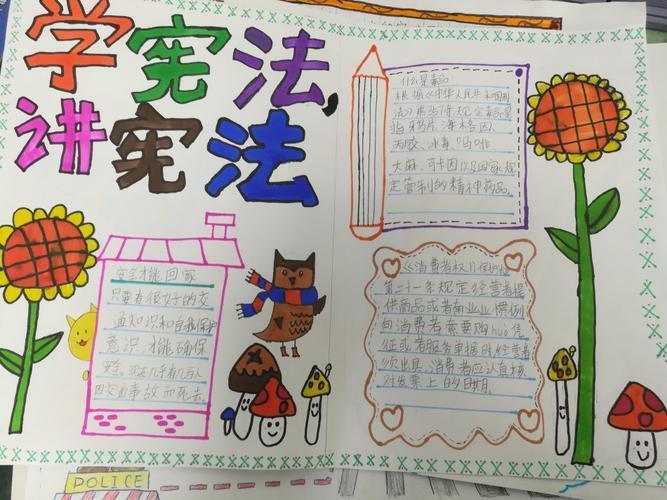 学宪法,
讲宪法
什么是毒品
根据《中华人民共和国刑
法》第357年规定毒品是
指鸦片、海洛因、
丙胶、冰毒、吗啡
大麻、可卡因以及国家规
定管制的精神药品。
安全才能回家
只要有很好的交
通知识和自我保护
意识才能确保
安全,现在几乎有几百人
因交通事故而死去.
《消费者权
第二十一条规定经营者提
供商品或者
向消费者索要购hu凭
证或者服务单据时,经营者
须出具.消费者应认真核
对发票上的日期.
POLICE